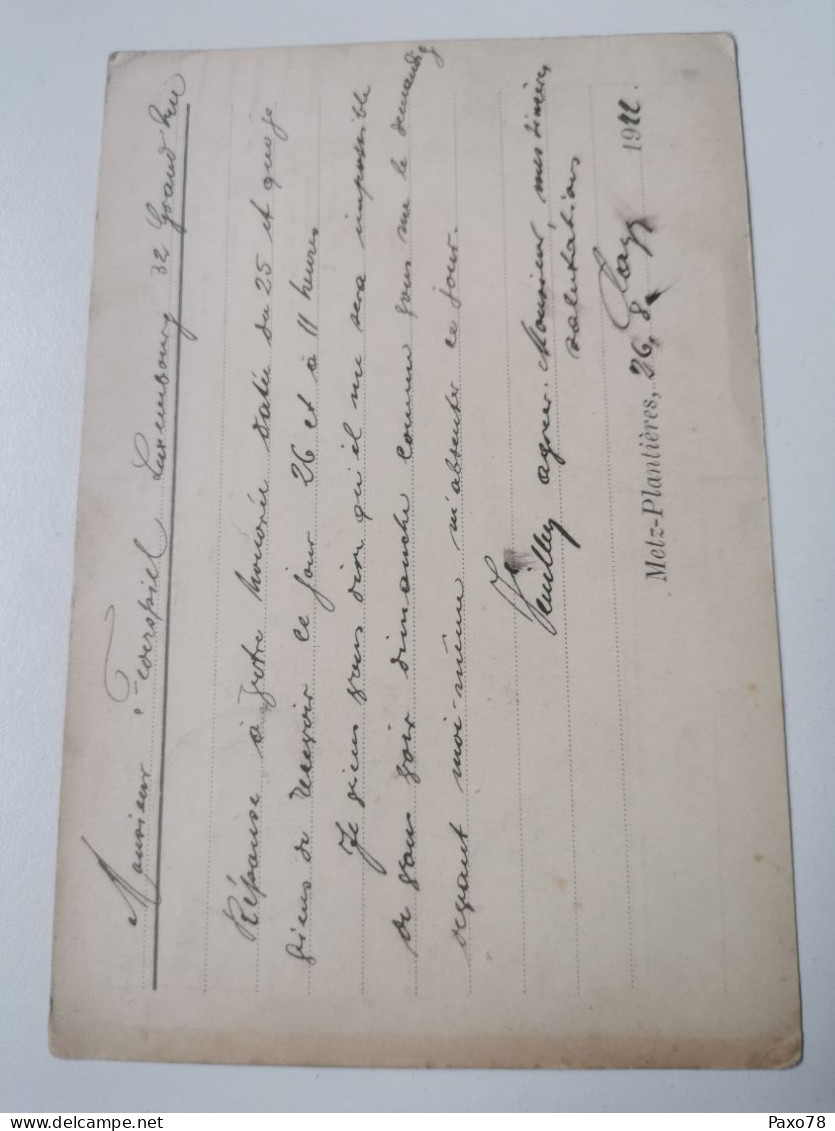 Monsieur Feuerspiel Luxembourg 32 Grand'rue
Réponse à votre honorée datée du 25 et que je
viens de recevoir ce jour 26 et à 11 heures
Je viens vous dire qu'il me sera impossible
de vous voir dimanche comme vous me le demandez
devant moi-même m'absenter ce jour.
Veuillez agréer. Monsieur, mes sincères
salutations
Metz-Plantières, 26, 8, 1922.
delcampe.net
Paxo78